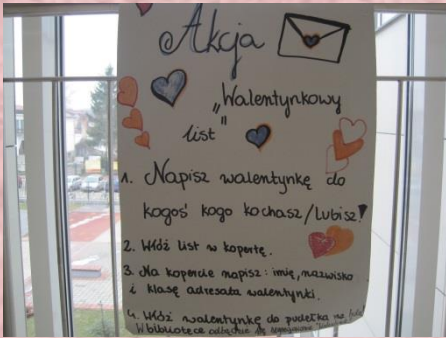 Akcja
„Walentynkowy
list"
1. Napisz walentynkę do
kogoś kogo kochasz/lubisz!
2. Włóż list w kopertę.
3. Na kopercie napisz: imię, nazwisko
i klasę adresata walentynki.
4. Włóż walentynkę do pudełka na
W bibliotece odbędzie się